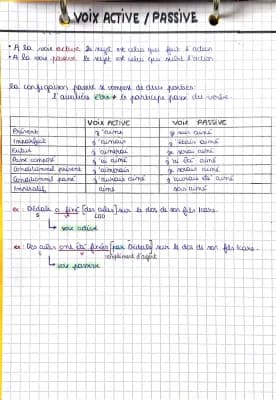 VOIX ACTIVE / PASSIVE
• A la voix active le sujet est celui qui fait l'action
• A la voix passive le sujet est celui qui subit l'action
La conjugaison passive se compose de deux parties:
l'auxiliaire être + le participe passé du verbe.
VOIX ACTIVE VOIX PASSIVE
Présent j'aime je suis aimé
Imparfait j'aimais j'étais aimé
Futur j'aimerai je serai aimé
Passé composé j'ai aimé j'ai été aimé
Conditionnel présent j'aimerais je serais aimé
Conditionnel passé j'aurais aimé j'aurais été aimé
Impératif aime sois aimé
ex: Dédale a fixé [des ailes] sur le dos de son fils Icare.
S COD
voix active
ex: Des ailes ont été fixées [par Dédale] sur le dos de son fils Icare.
S complément d'agent
voix passive